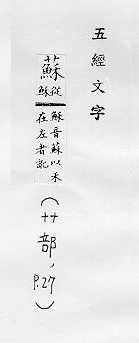 五經文字
蘇
從穌
穌音蘇以禾
在左者訛
（艹部，P.27）